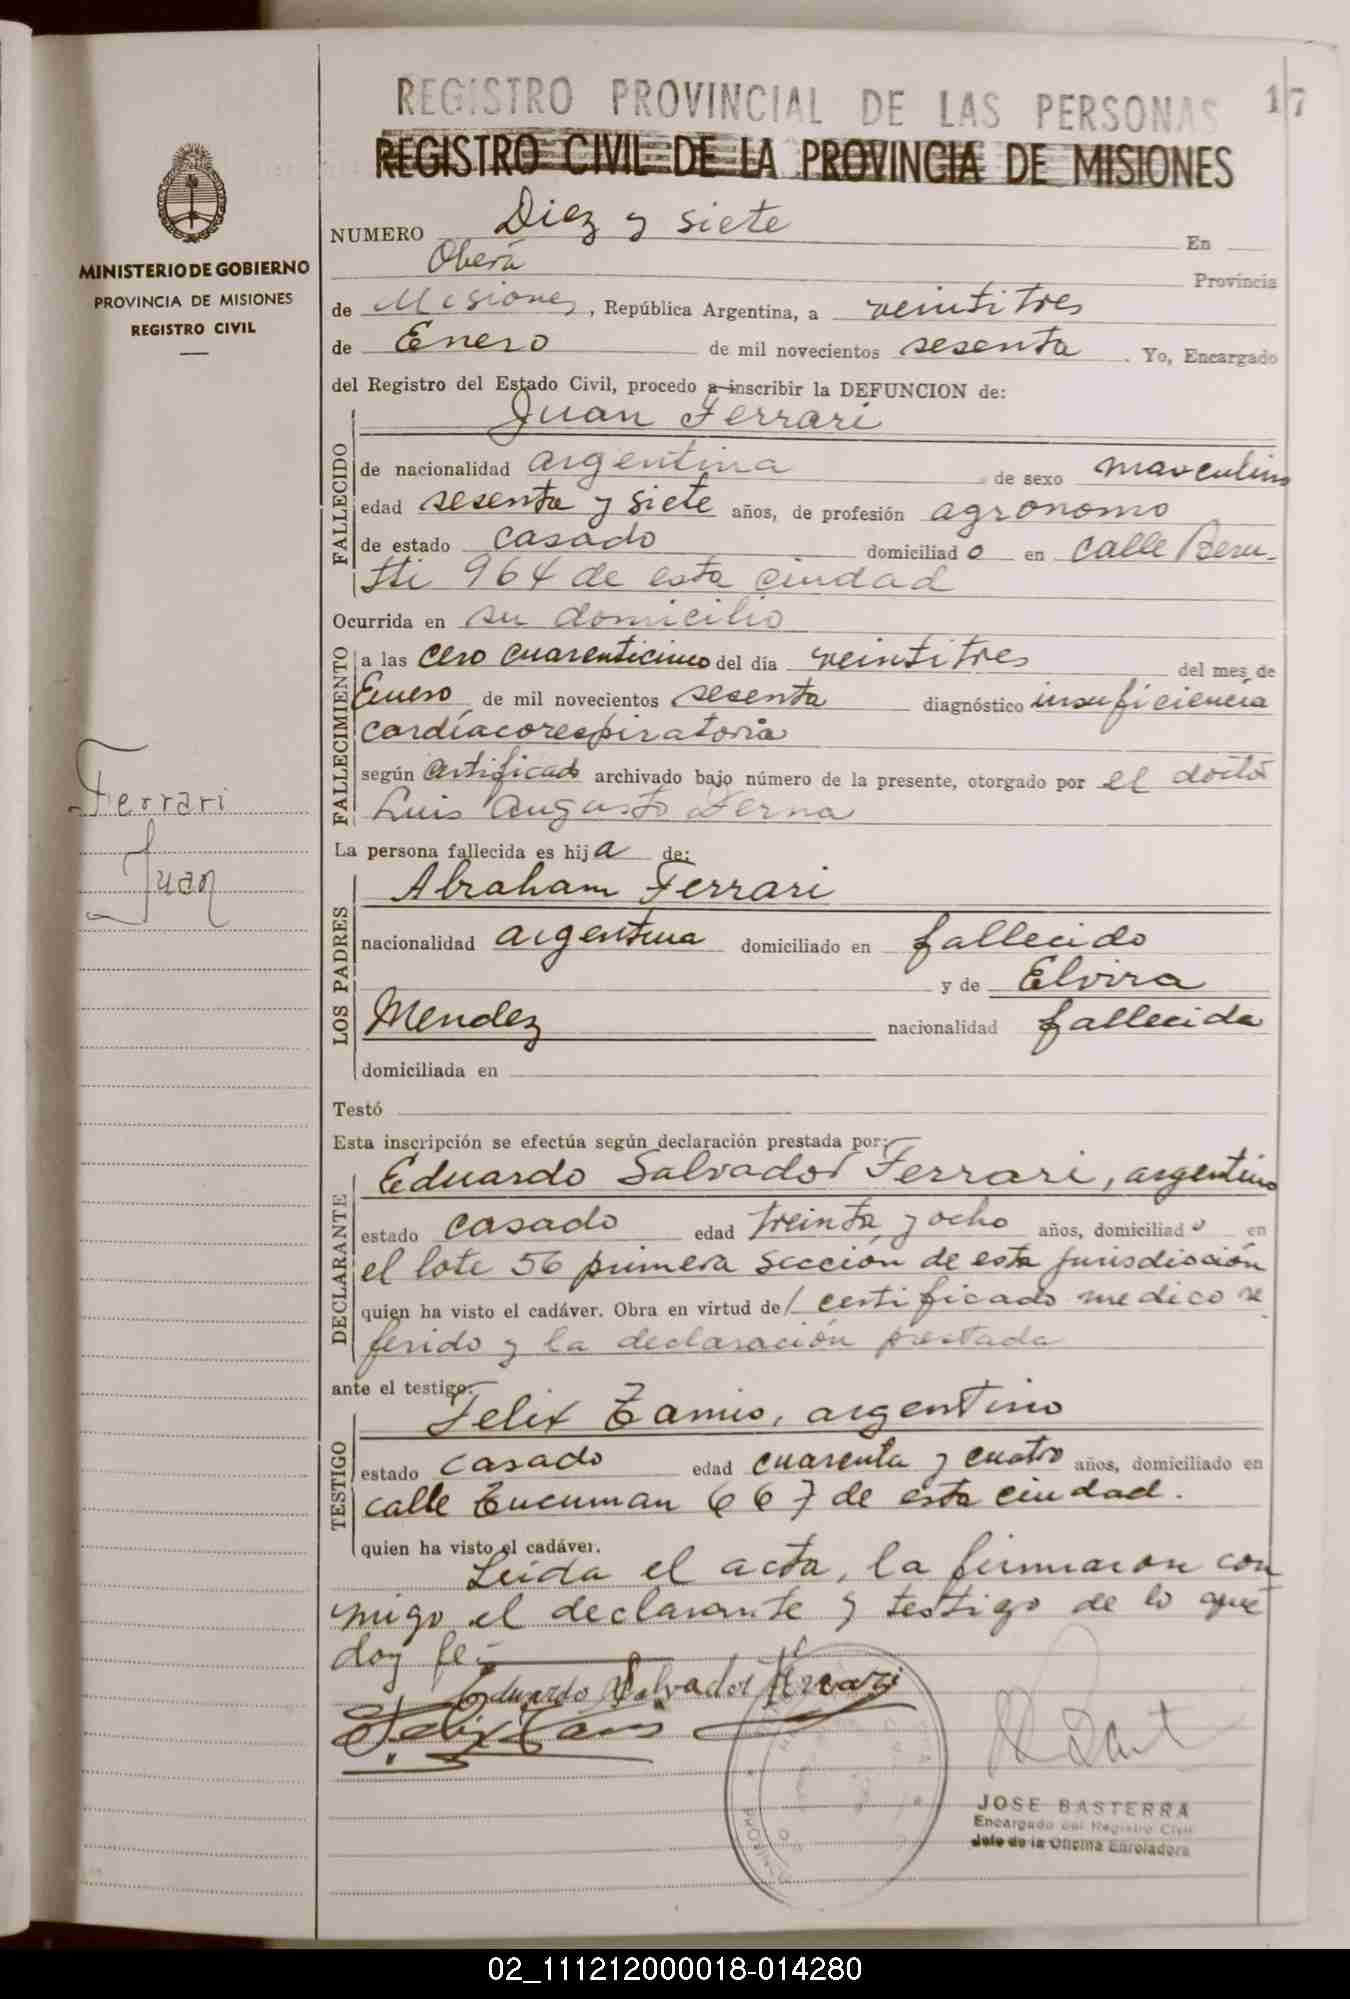 REGISTRO PROVINCIAL DE LAS PERSONAS
17
REGISTRO CIVIL DE LA PROVINCIA DE MISIONES
MINISTERIO DE GOBIERNO
PROVINCIA DE MISIONES
REGISTRO CIVIL
NUMERO Diez y siete En
Oberá Provincia
de Misiones, República Argentina, a veintitres
de Enero de mil novecientos sesenta. Yo, Encargado
del Registro del Estado Civil, procedo a inscribir la DEFUNCION de:
Juan Ferrari
FALLECIDO
de nacionalidad argentina de sexo masculino
edad sesenta y siete años, de profesión agronomo
de estado casado domiciliado en calle Beru-
tti 964 de esta ciudad
Ocurrida en su domicilio
FALLECIMIENTO
a las cero cuarenticinco del día veintitres del mes de
Enero de mil novecientos sesenta diagnóstico insuficiencia
cardíacorespiratoria
según certificado archivado bajo número de la presente, otorgado por el doctor
Luis Augusto
Ferrari
Juan
La persona fallecida es hija de:
LOS PADRES
Abraham Ferrari
nacionalidad argentina domiciliado en fallecido
y de Elvira
Mendez nacionalidad fallecida
domiciliada en
Testó
Esta inscripción se efectúa según declaración prestada por:
DECLARANTE
Eduardo Salvador Ferrari, argentino
estado casado edad treinta y ocho años, domiciliado en
el lote 56 primera seccion de esta jurisdicción
quien ha visto el cadáver. Obra en virtud del certificado medico re
ferido y la declaración prestada
ante el testigo:
TESTIGO
Felix Tamis, argentino
estado casado edad cuarenta y cuatro años, domiciliado en
calle Tucuman 667 de esta ciudad.
quien ha visto el cadáver.
Leida el acta, la firmaron con
migo el declarante y testigo de lo que
doy fe.-
Eduardo Salvador Ferrari
Felix
JOSE BASTERRA
Encargado del Registro Civil
Jefe de la Oficina Enroladora
02_111212000018-014280